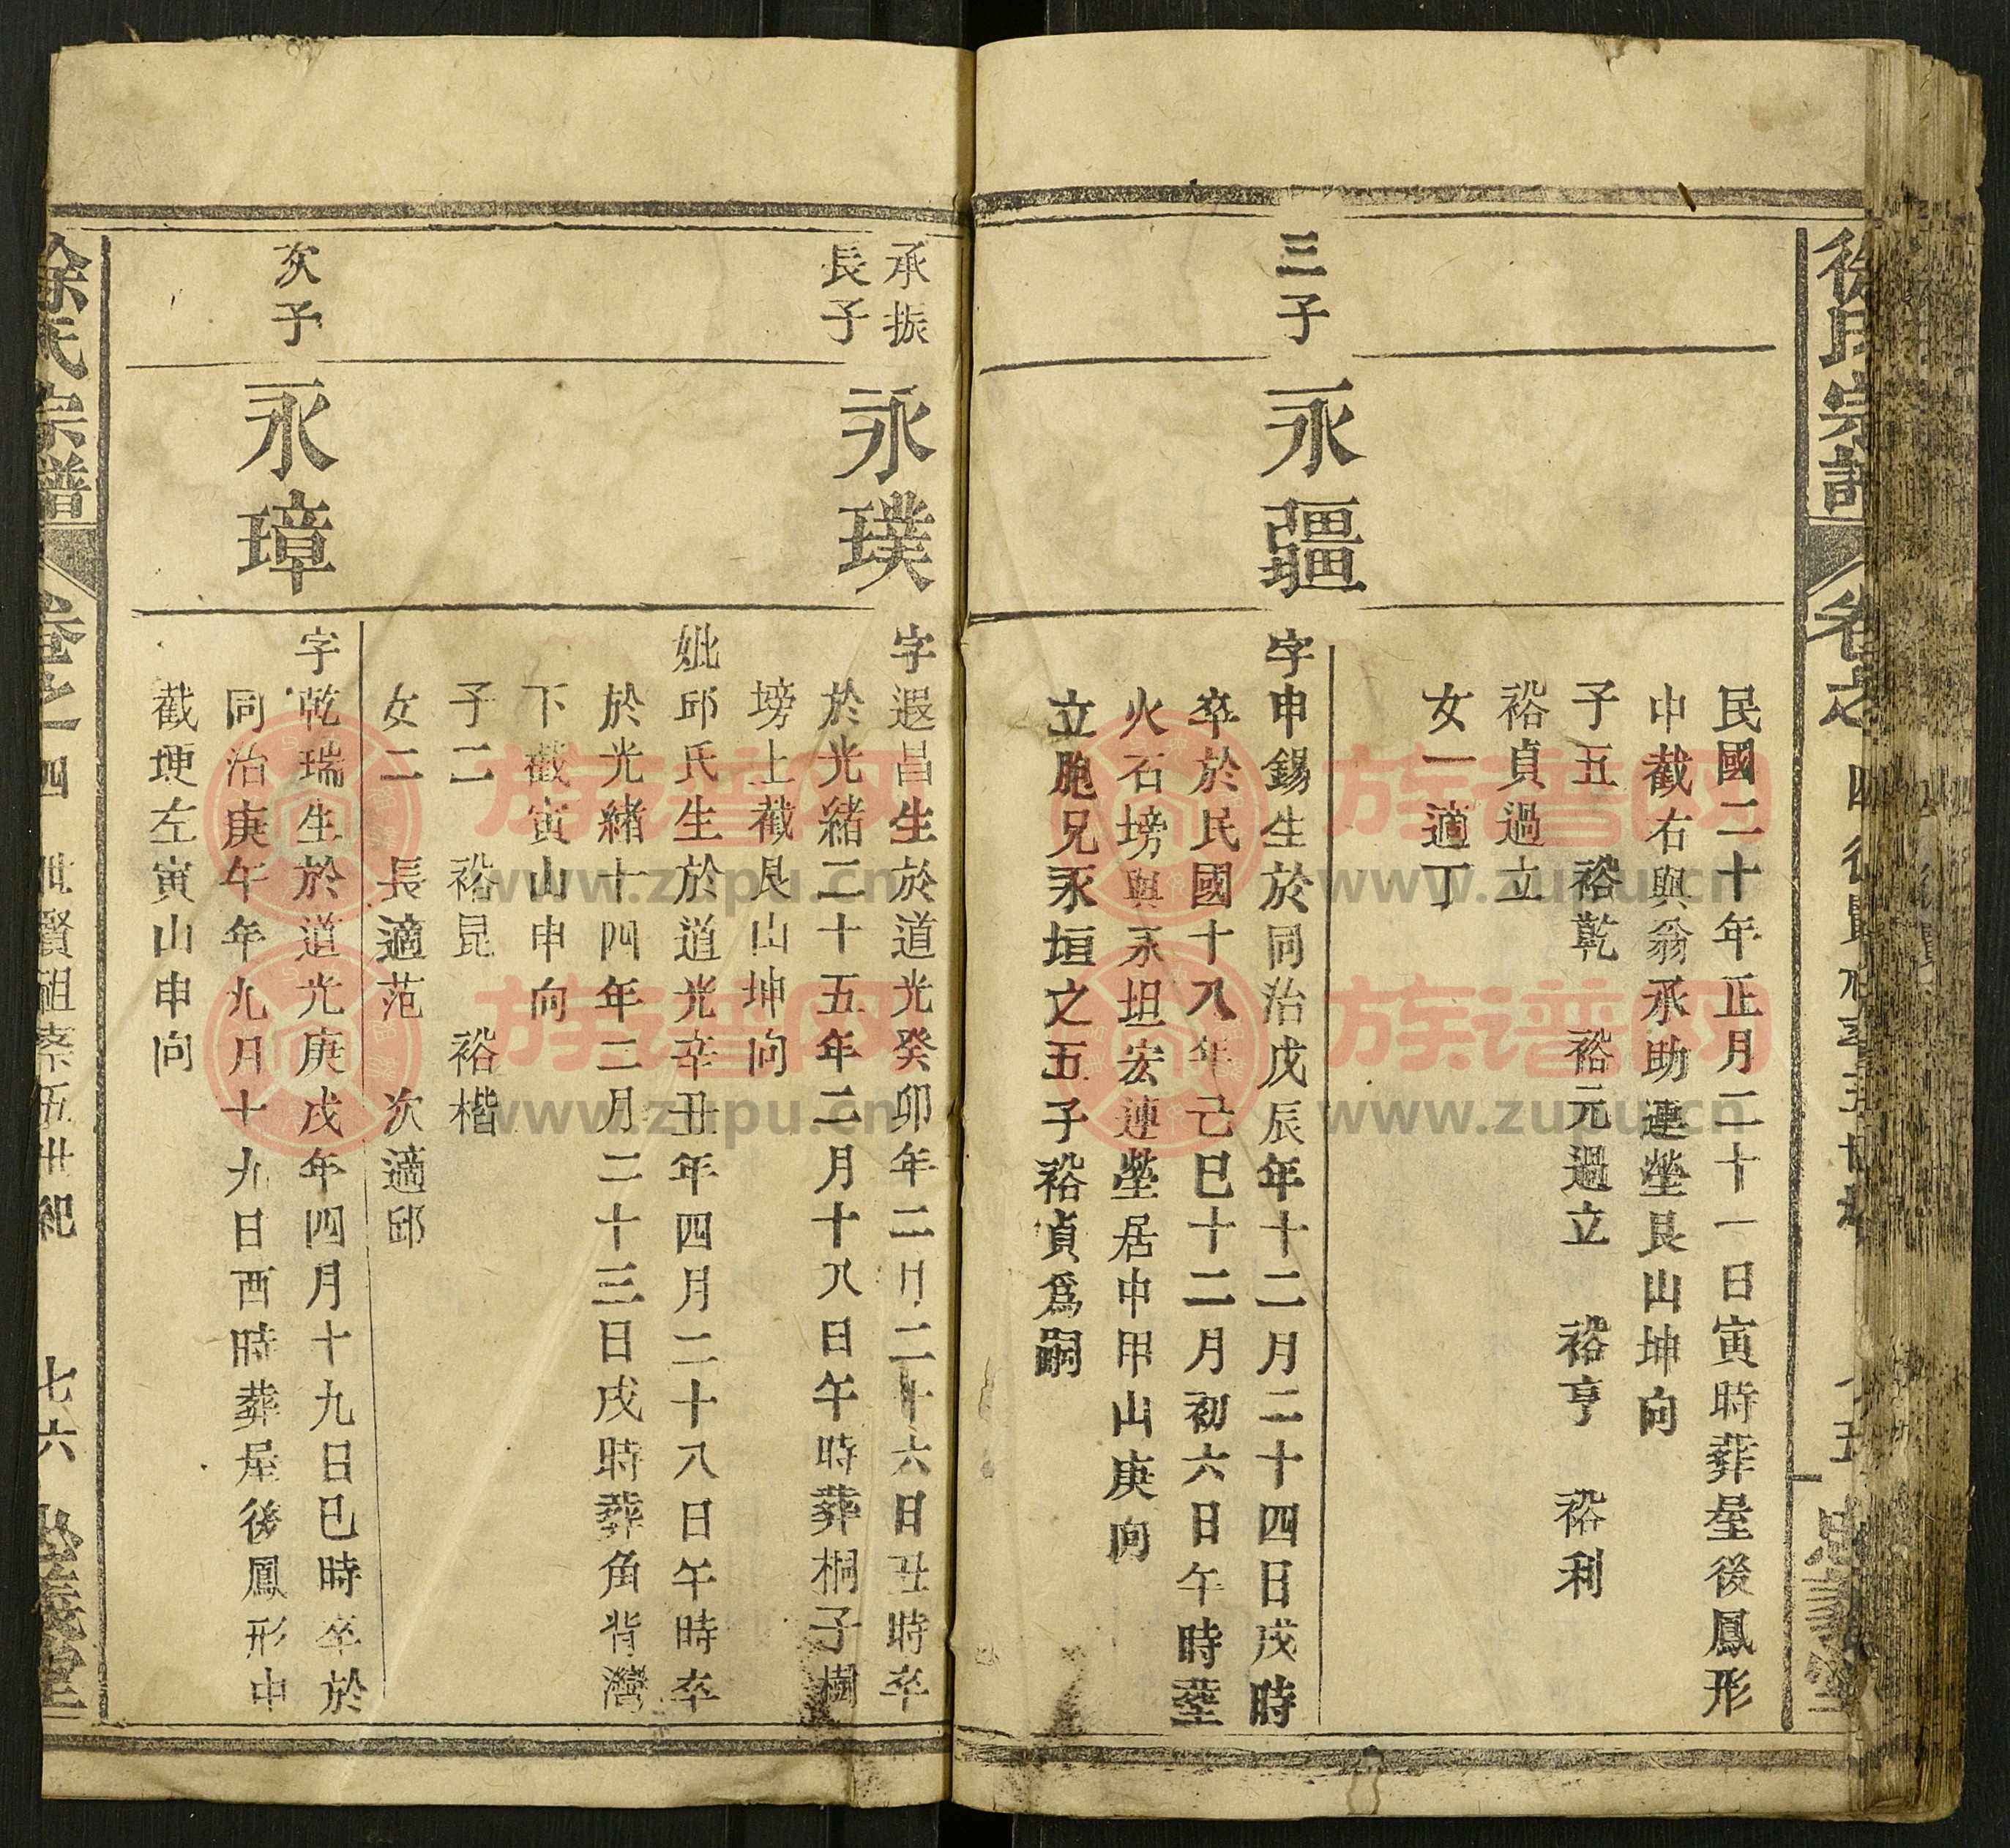 徐氏宗譜
卷之四
忠義堂
民國二十年正月二十一日寅時葬屋後鳳形
中截右與翁承助連塋艮山坤向
子五 裕乾 裕元過立 裕亨 裕利
裕貞過立
女一適丁
三子
永疆
字申錫生於同治戊辰年十二月二十四日戌時
卒於民國十八年己巳十二月初六日午時塟
火石塝與永坦宏連塋居中甲山庚向
立胞兄永垣之五子裕貞爲嗣
承振
長子
永璞
字遐昌生於道光癸卯年二月二十六日丑時卒
於光緒二十五年二月十八日午時葬桐子樹
塝上截艮山坤向
妣邱氏生於道光辛丑年四月二十八日午時卒
於光緒十四年二月二十三日戌時葬角背灣
下截寅山申向
子二 裕昆 裕楷
女二 長適范 次適邱
次子
永璋
字乾瑞生於道光庚戌年四月十九日巳時卒於
同治庚午年九月十九日酉時葬屋後鳳形中
截埂左寅山申向
徐氏宗譜
卷之四
世賢祖系五世紀
七六
忠義堂
族谱网
www.zupu.cn
族谱网
www.zupu.cn
族谱网
www.zupu.cn
族谱网
www.zupu.cn